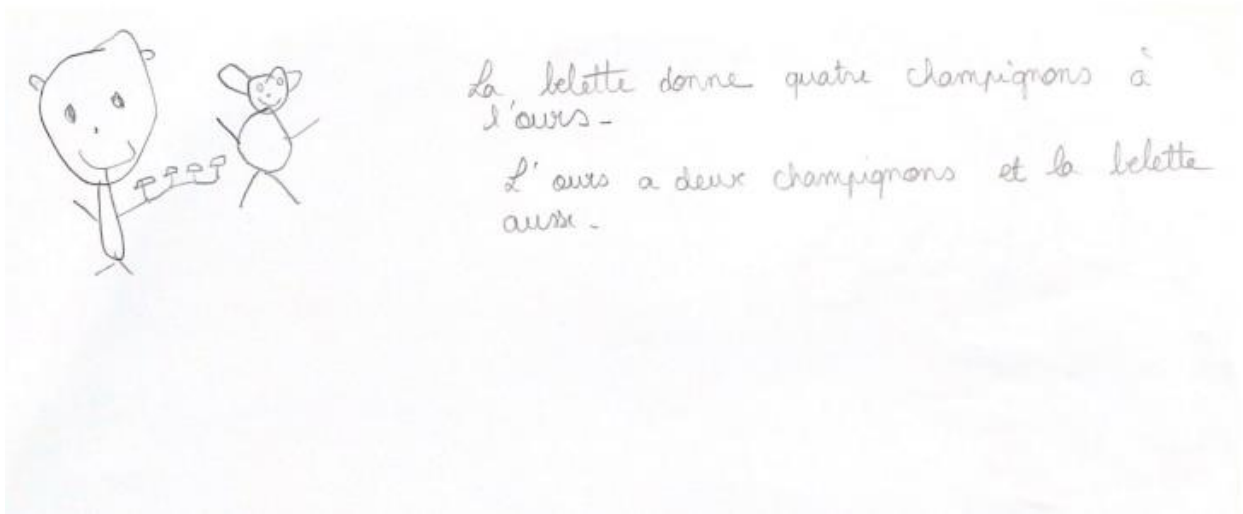 La belette donne quatre champignons à
l'ours-
L'ours a deux champignons et la belette
aussi-